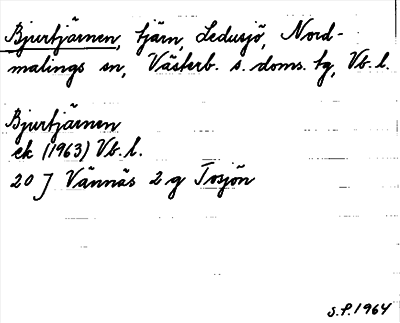 Bjurtjärnen, tjärn, Ledusjö, Nord-
malings sn, Västerb. s. doms. tg, Vb. l.
Bjurtjärnen
ek (1963) Vb. l.
20 J Vännäs 2 g Tosjön
S.P. 1964